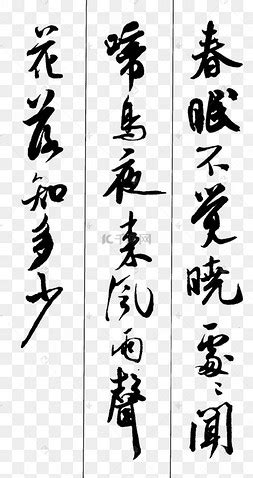 春眠不觉晓處〻闻
啼鸟夜来风雨聲
花落知多少